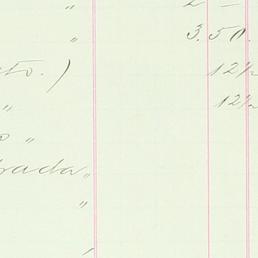 " 2 –
" 3.50.
to.)
12½
" 12½
o "
rada "
"